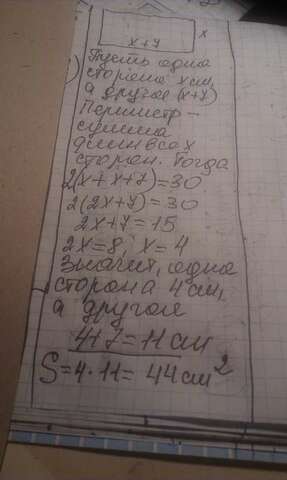 x
x+7
Пусть одна
сторона x см,
а другая (x+7)
Периметр -
сумма
длин всех
сторон. Тогда
2(x+x+7)=30
2(2x+7)=30
2x+7=15
2x=8, x=4
Значит, одна
сторона 4 см,
а другая
4+7=11 см
S=4·11=44 см²